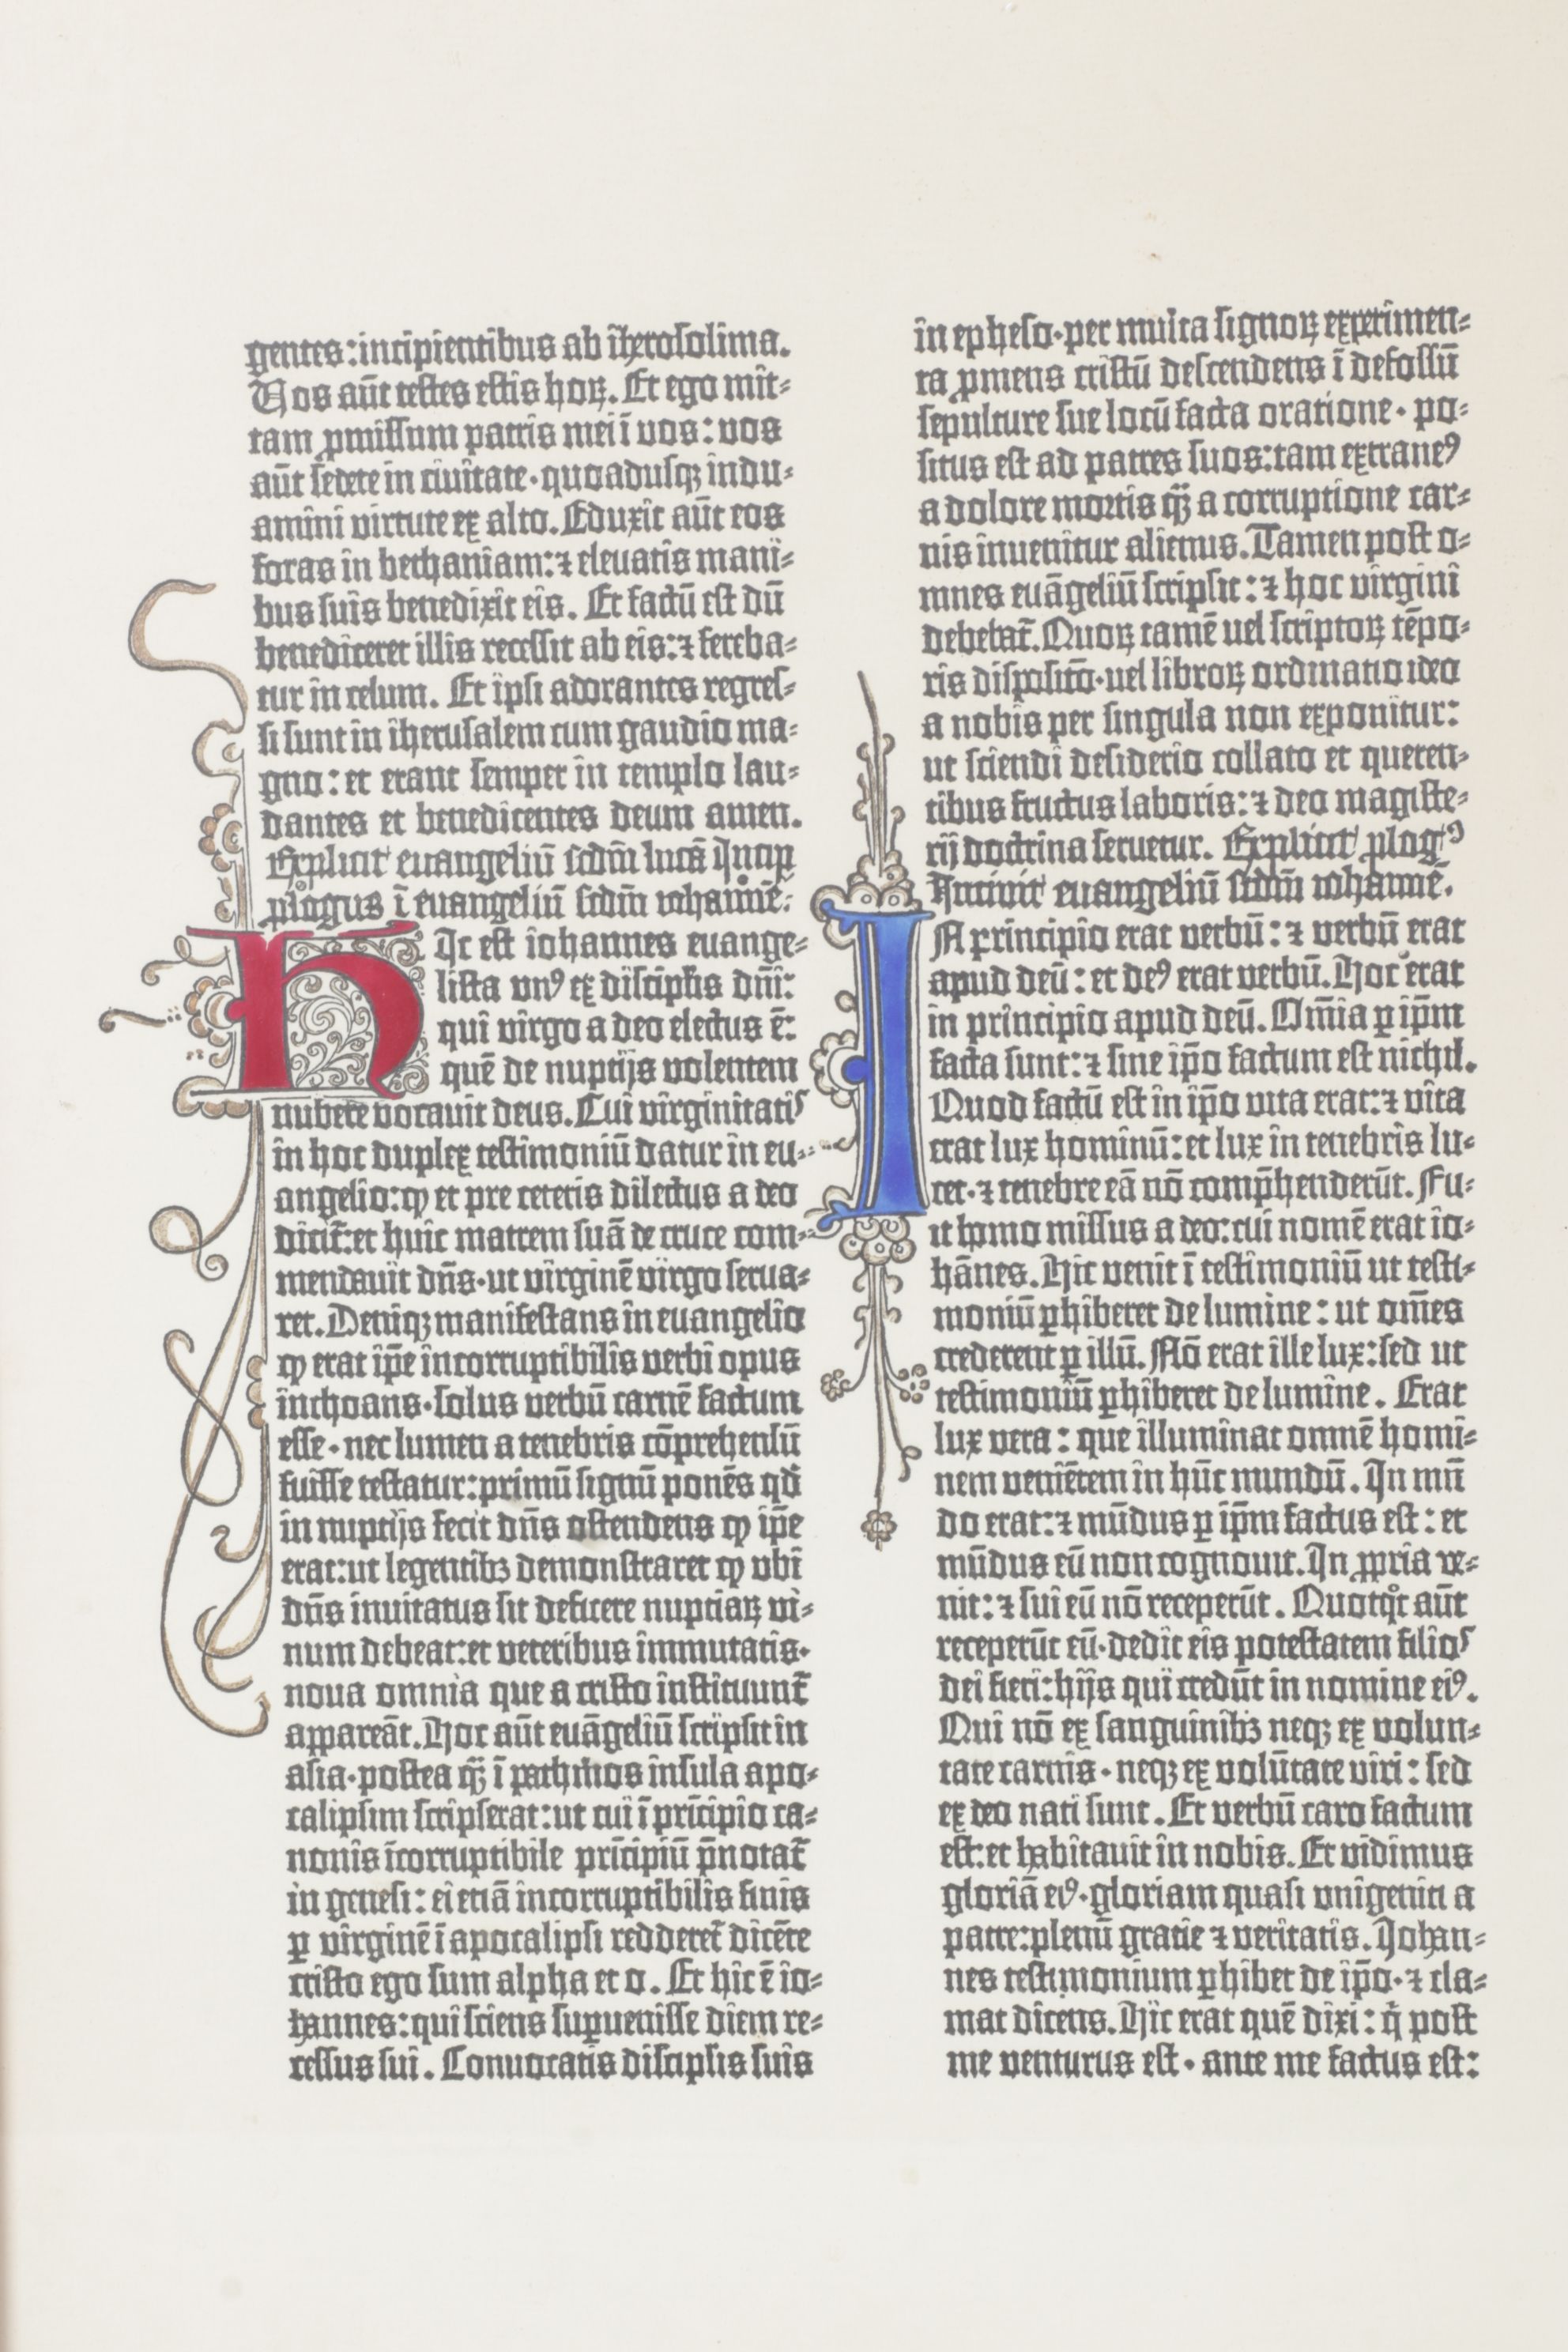 gentes: incipientibus ab iherosolima.
Vos aūt testes estis hoꝝ. Et ego mit⸗
tam ꝓmissum patris mei ī vos: vos
aūt sedete in civitate· quoadusqꝫ indu⸗
amini virtute ex alto. Eduxit aūt eos
foras in bethaniam: ⁊ elevatis mani⸗
bus suis benedixit eis. Et factū est dū
benediceret illis recessit ab eis: ⁊ fereba⸗
tur in celum. Et ipsi adorantes regres⸗
si sunt in iherusalem cum gaudio ma⸗
gno: et erant semper in templo lau⸗
dantes et benedicentes deum amen.
Explicit evangeliū scdm̄ lucā Incip̄
plogus ī evangeliū scdm̄ iohannē.
HIc est iohannes euange⸗
lista vnꝰ ex discipl̄is dn̄i:
qui virgo a deo electus ē:
quē de nuptijs volentem
nubere vocauit deus. Cui virginitatis
in hoc duplex testimoniū datur in eu⸗
angelio: ꝙ et pre ceteris dilectus a deo
dicit̄: et huic matrem suā de cruce com⸗
mendauit dn̄s· ut virginē virgo serua⸗
ret. Deniqꝫ manifestans in euangelio
ꝙ erat ip̄e incorruptibilis verbi opus
inchoans· solus verbū carnē factum
esse· nec lumen a tenebris cōprehensū
fuisse testatur: primū signū ponēs qd̄
in nuptijs fecit dn̄s ostendens ꝙ ip̄e
erat: ut legentibꝫ demonstraret ꝙ vbi
dn̄s inuitatus sit deficere nuptiaꝝ vi⸗
num debeat: et veteribus immutatis·
noua omnia que a cristo instituunt̄
appareāt. Hoc aūt euāgeliū scripsit in
asia· postea q̄ꝫ ī pathmos insula apo⸗
calipsim scripserat: ut cui ī prīcipio ca⸗
nonis īcorruptibile prīcipiū p̄notat̄
in genesi: ei etiā incorruptibilis finis
ꝑ virginē ī apocalipsi redderet̄ dicēte
cristo ego sum alpha et o. Et hic ē io⸗
hannes: qui sciens suꝑuenisse diem re⸗
cessus sui. Conuocatis discipl̄is suis
in epheso· per multa signoꝝ experimen⸗
ta ꝓmens cristū descendens ī defossū
sepulture sue locū facta oratione· po⸗
situs est ad patres suos: tam extraneꝰ
a dolore mortis q̄ꝫ a corruptione car⸗
nis inuenitur alienus. Tamen post o⸗
mnes euāgeliū scripsit: ⁊ hoc virgini
debebat̄. Quoꝝ tamē uel scriptoꝝ tēpo⸗
ris dispositō· uel libroꝝ ordinatio ideo
a nobis per singula non exponitur:
ut sciendi desiderio collato et queren⸗
tibus fructus laboris: ⁊ deo magiste⸗
rij doctrina seruetur. Explicit ꝓlogꝰ
Incipit euangeliū scdm̄ iohannē.
IN principio erat verbū: ⁊ verbū erat
apud deū: et deꝰ erat verbū. Hoc erat
in principio apud deū. Om̄ia ꝑ ip̄m
facta sunt: ⁊ sine ip̄o factum est nichil.
Quod factū est in ip̄o vita erat: ⁊ vita
erat lux hominū: et lux in tenebris lu⸗
cet· ⁊ tenebre eā nō comp̄henderūt. Fu⸗
it homo missus a deo: cui nomē erat io⸗
hānes. Hic venit ī testimoniū ut testi⸗
moniū ꝑhiberet de lumine: ut om̄es
crederent ꝑ illū. Nō erat ille lux: sed ut
testimoniū ꝑhiberet de lumine. Erat
lux vera: que illuminat omnē homi⸗
nem veniētem in hūc mundū. In mū
do erat: ⁊ mūdus ꝑ ip̄m factus est: et
mūdus eū non cognouit. In ꝓpria ve⸗
nit: ⁊ sui eū nō receperūt. Quotqͦt aūt
receperūt eū· dedit eis potestatem filios
dei fieri: hijs qui credūt in nomine eiꝰ.
Qui nō ex sanguinibꝫ neqꝫ ex volun⸗
tate carnis· neqꝫ ex volūtate viri: sed
ex deo nati sunt. Et verbū caro factum
est: et habitauit in nobis. Et vidimus
gloriā eiꝰ· gloriam quasi vnigeniti a
patre: plenū gratie ⁊ veritatis. Iohan⸗
nes testimonium ꝑhibet de ip̄o· ⁊ cla⸗
mat dicens. Hic erat quē dixi: q̄ post
me venturus est· ante me factus est: